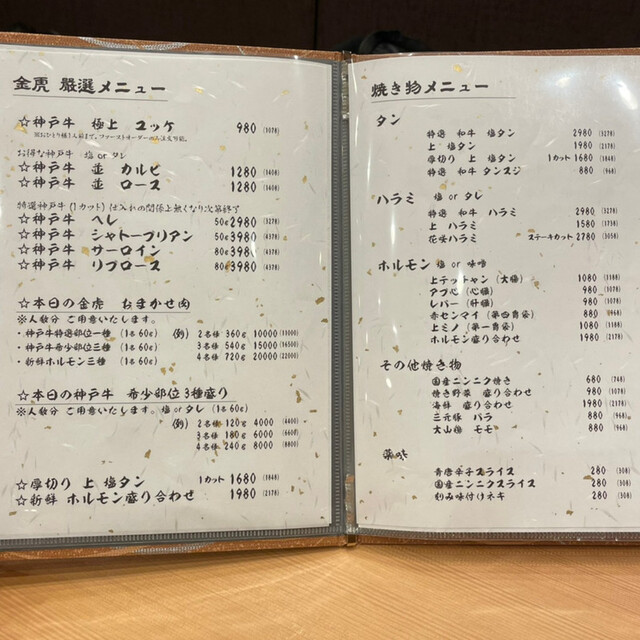 金虎 厳選メニュー
☆神戸牛 極上 ユッケ 980 (1078)
※おひとり様1人前まで。ファーストオーダーのみ注文可能。
お得な神戸牛 塩 or タレ
☆神戸牛 並 カルビ 1280 (1408)
☆神戸牛 並 ロース 1280 (1408)
特選神戸牛 (1カット) 仕入れの関係上無くなり次第終了
☆神戸牛 ヘレ 50g 2980 (3278)
☆神戸牛 シャトーブリアン 50g 3980 (4378)
☆神戸牛 サーロイン 80g 3980 (4378)
☆神戸牛 リブロース 80g 3980 (4378)
☆本日の金虎 おまかせ肉
※人数分 ご用意いたします。
・神戸牛特選部位一種 (1名60g) (例) 2名様 360g 10000 (11000)
・神戸牛希少部位三種 (1名60g) 3名様 540g 15000 (16500)
・新鮮ホルモン三種 (1名60g) 4名様 720g 20000 (22000)
☆本日の神戸牛 希少部位3種盛り
※人数分 ご用意いたします。塩 or タレ (1名60g)
(例) 2名様 120g 4000 (4400)
3名様 180g 6000 (6600)
4名様 240g 8000 (8800)
☆厚切り 上 塩タン 1カット 1680 (1848)
☆新鮮 ホルモン盛り合わせ 1980 (2178)
焼き物メニュー
タン
特選 和牛 塩タン 2980 (3278)
上 塩タン 1980 (2178)
厚切り 上 塩タン 1カット 1680 (1848)
特選 和牛 タンスジ 880 (968)
ハラミ 塩 or タレ
特選 和牛 ハラミ 2980 (3278)
上 ハラミ 1580 (1738)
花咲ハラミ ステーキカット 2780 (3058)
ホルモン 塩 or 味噌
上テッチャン (大腸) 1080 (1188)
アブ心 (心臓) 980 (1078)
レバー (肝臓) 980 (1078)
赤センマイ (第四胃袋) 880 (968)
上ミノ (第一胃袋) 1080 (1188)
ホルモン盛り合わせ 1980 (2178)
その他焼き物
国産ニンニク焼き 680 (748)
焼き野菜 盛り合わせ 980 (1078)
海鮮 盛り合わせ 1980 (2178)
三元豚 バラ 880 (968)
大山鶏 モモ 880 (968)
薬味
青唐辛子スライス 280 (308)
国産ニンニクスライス 280 (308)
刻み味付けネギ 280 (308)